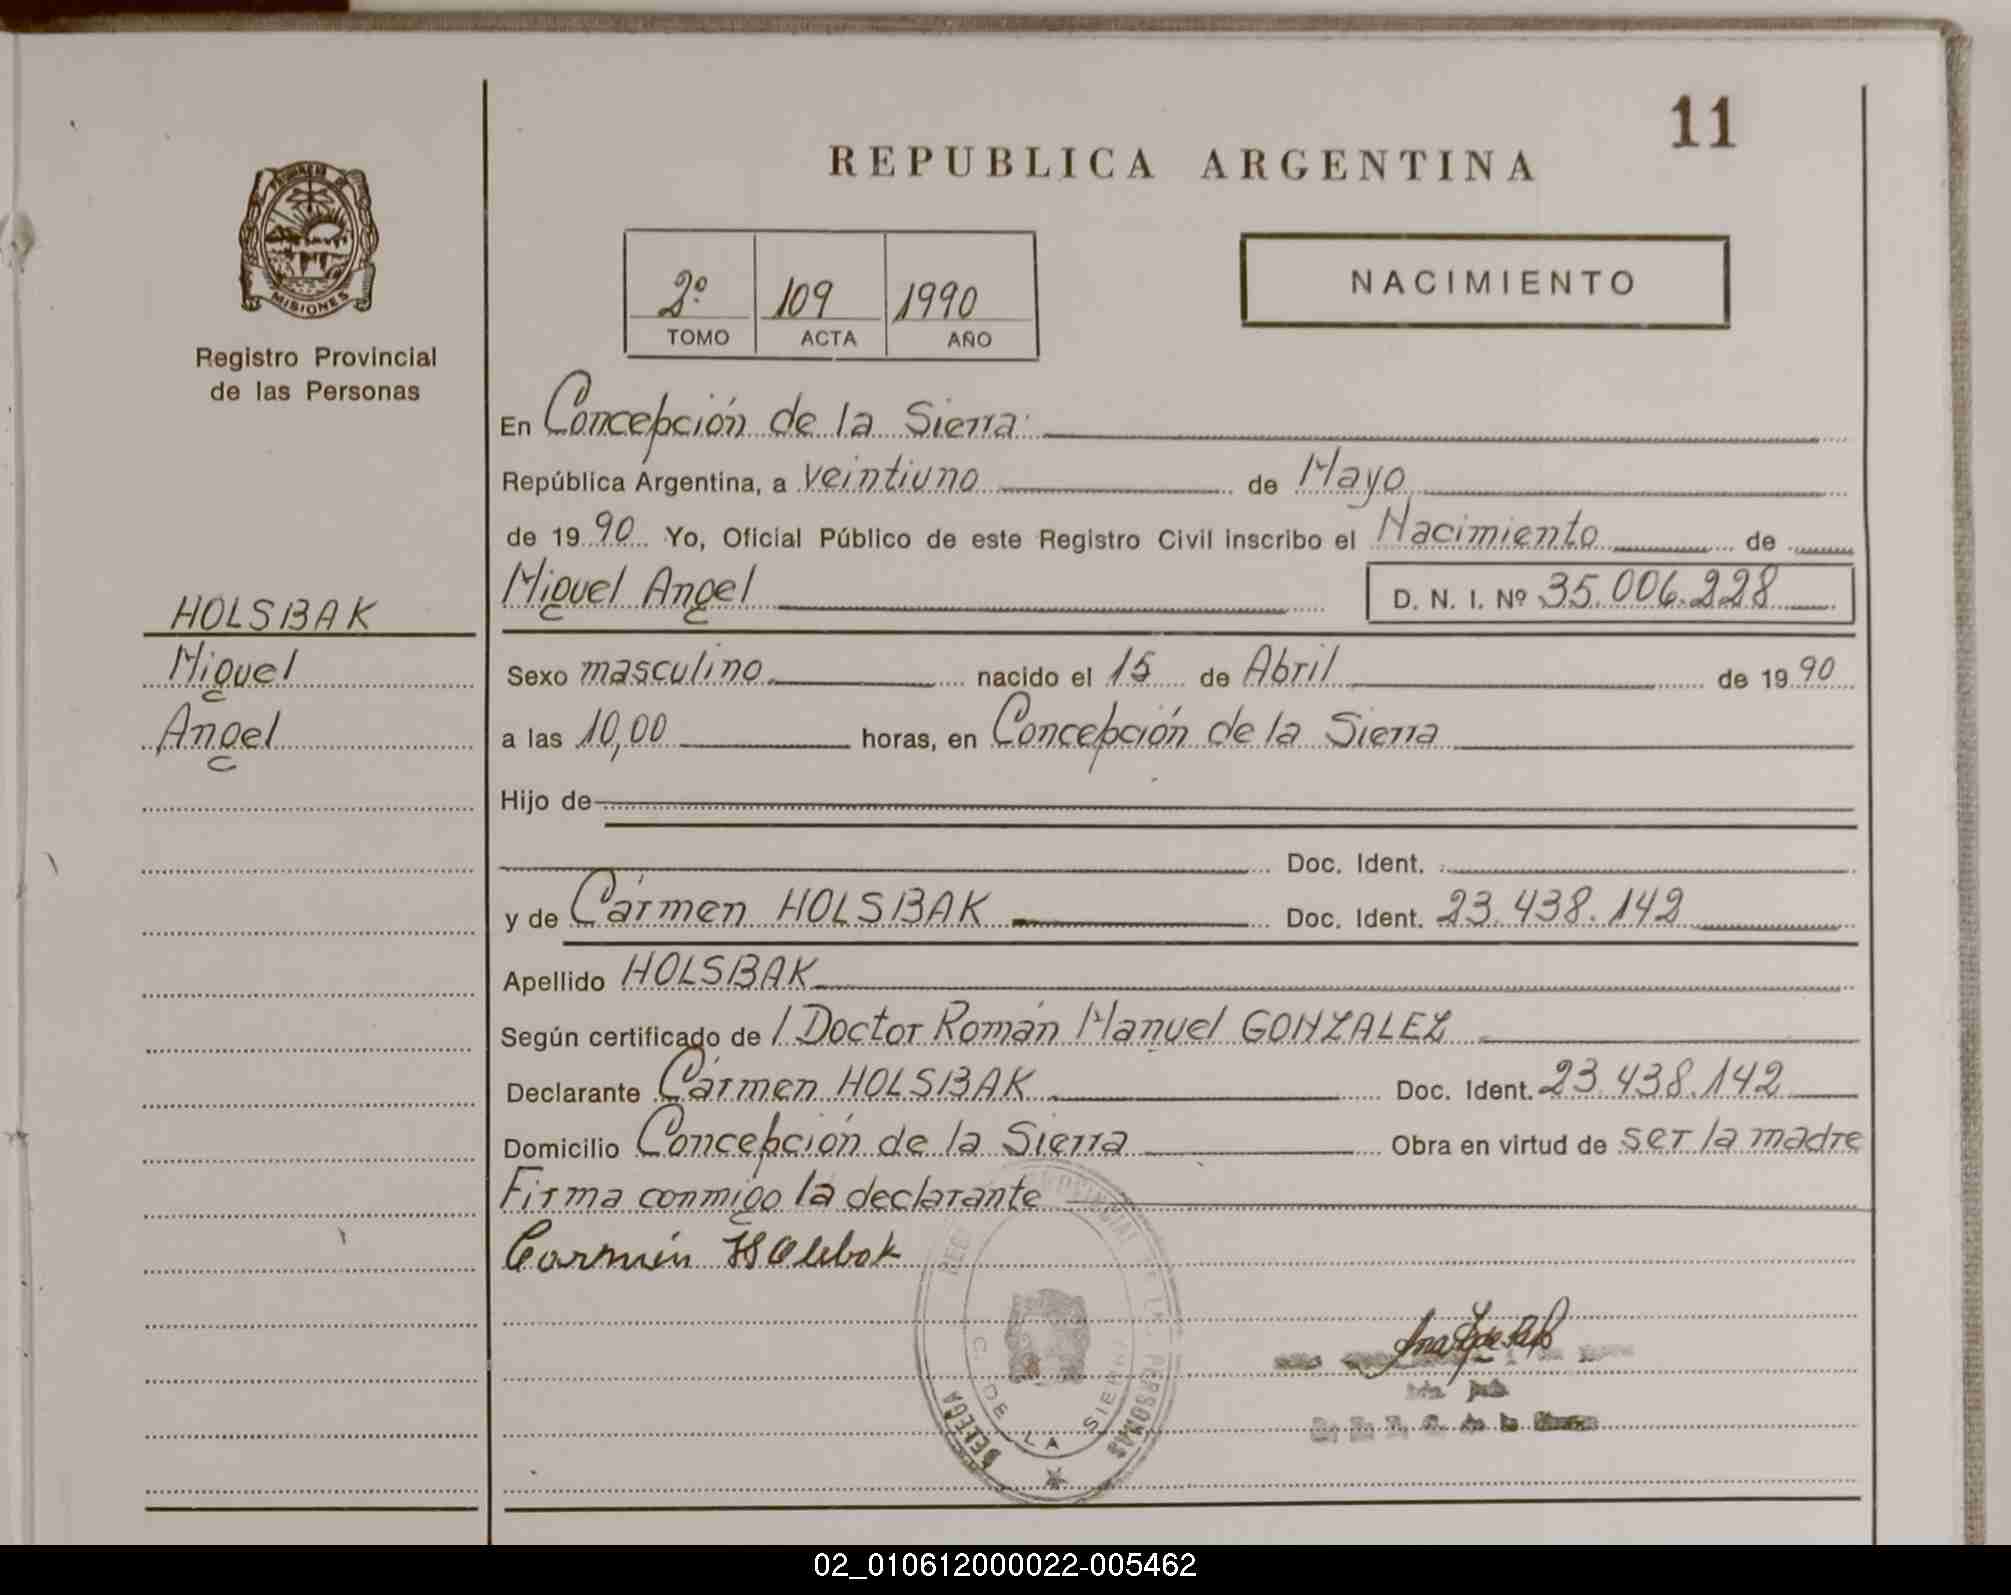 11
REPUBLICA ARGENTINA
MISIONES
Registro Provincial
de las Personas
2º 109 1990
TOMO ACTA AÑO
NACIMIENTO
En Concepción de la Sierra
República Argentina, a veintiuno de Mayo
de 1990 Yo, Oficial Público de este Registro Civil inscribo el Nacimiento de
Miguel Angel D. N. I. Nº 35.006.228
HOLSBAK
Miguel
Angel
Sexo masculino nacido el 15 de Abril de 1990
a las 10,00 horas, en Concepción de la Sierra
Hijo de
Doc. Ident.
y de Cármen HOLSBAK Doc. Ident. 23.438.142
Apellido HOLSBAK
Según certificado de l Doctor Román Manuel GONZALEZ
Declarante Cármen HOLSBAK Doc. Ident. 23.438.142
Domicilio Concepción de la Sierra Obra en virtud de ser la madre
Firma conmigo la declarante
Carmen
PROVINCIAL DE LAS PERSONAS
C. DE LA SIERRA
02_010612000022-005462